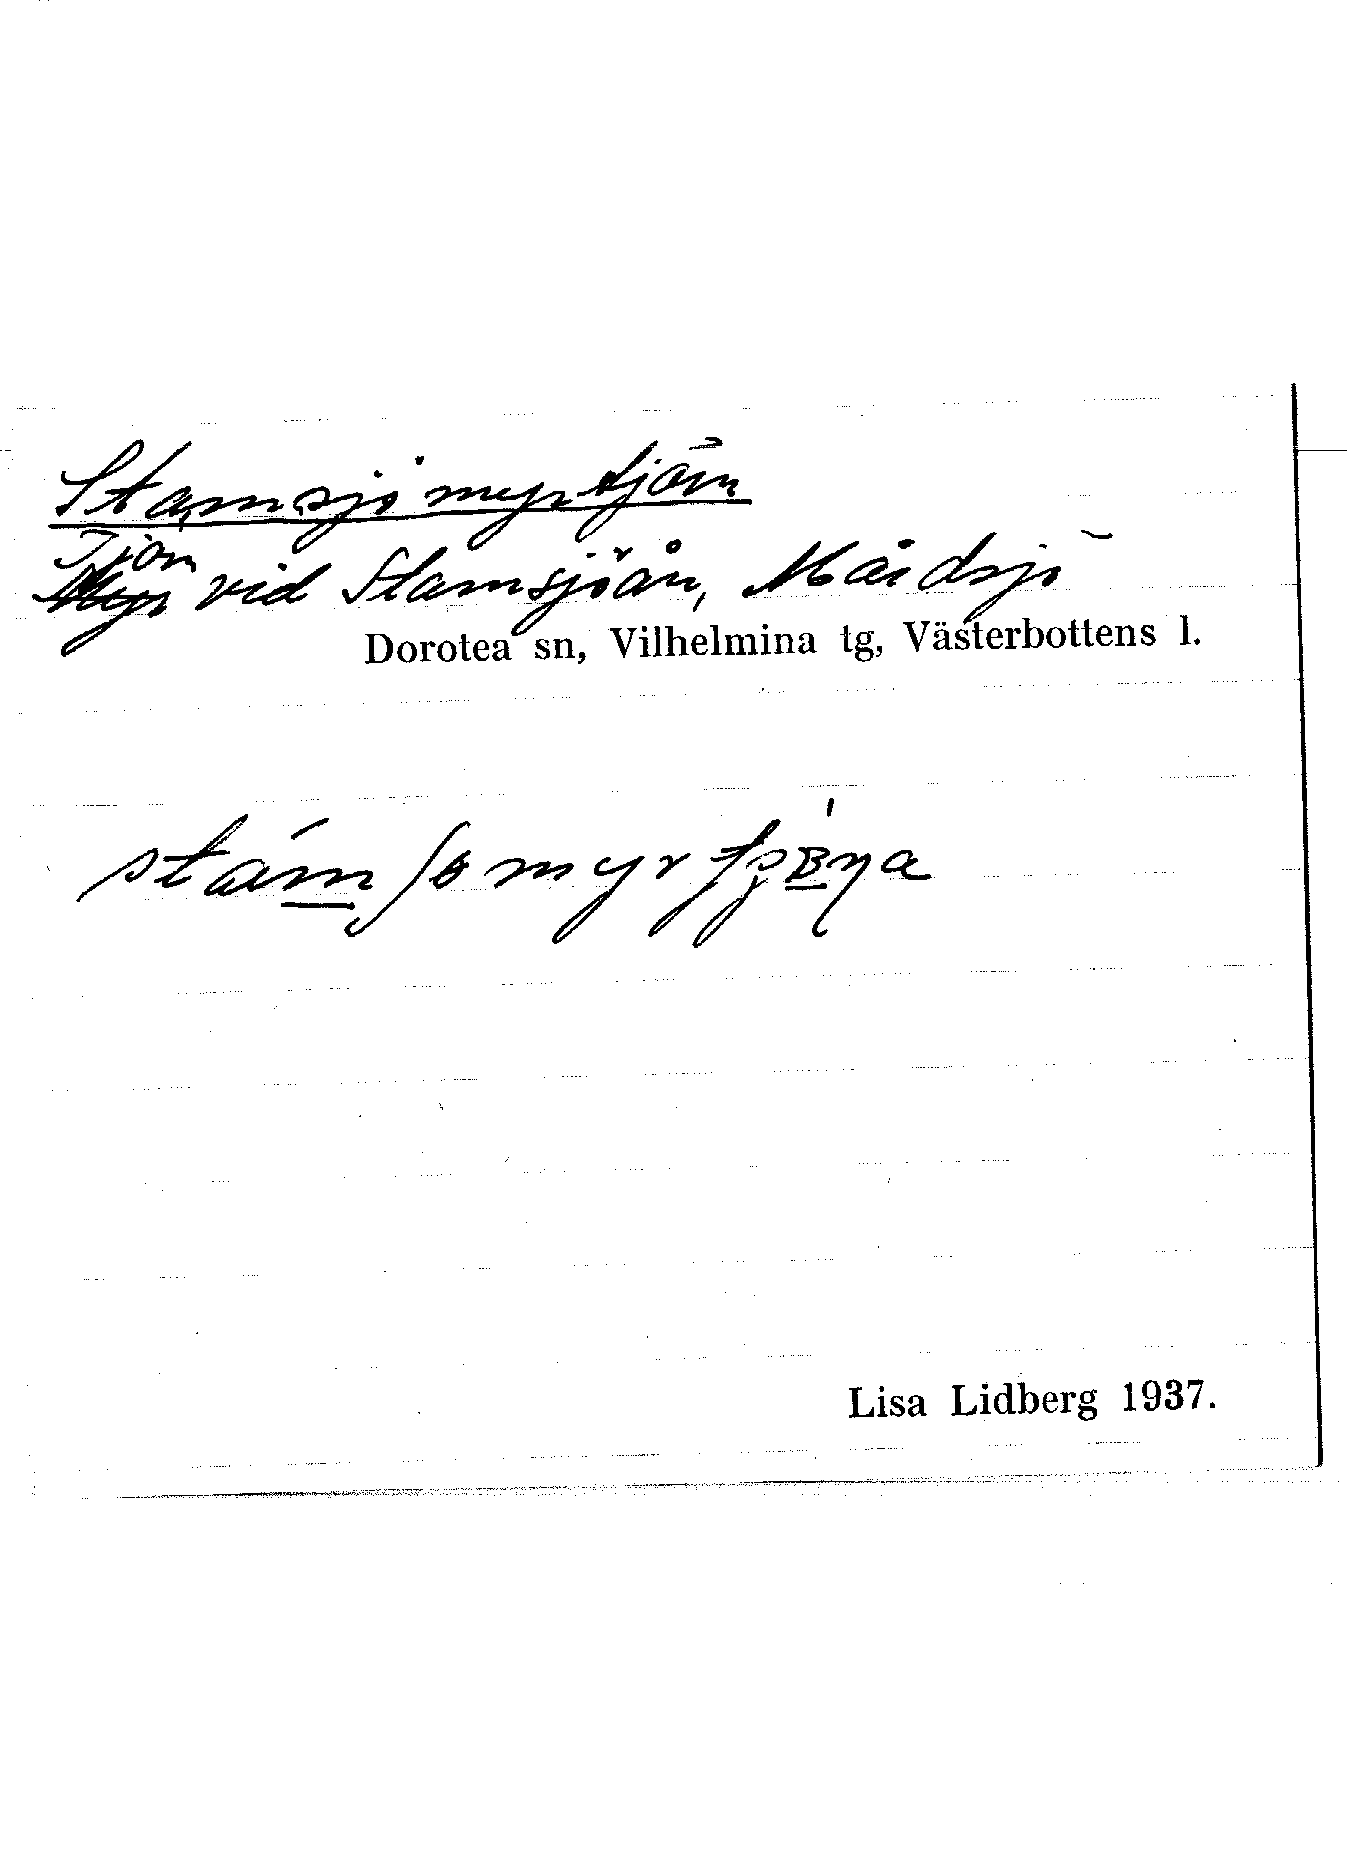 Stamsjömyrtjärn
Tjärn
Myr vid Stamsjöån, Mårdsjö
Dorotea sn, Vilhelmina tg, Västerbottens l.
Lisa Lidberg 1937.